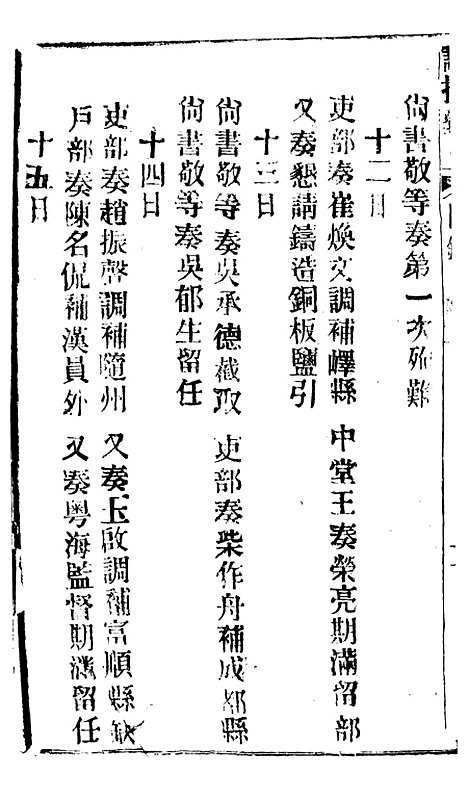 尙書敬等奏第一次殉難
十二日
吏部奏崔煥文調補嶧縣 中堂王奏榮亮期滿留部
又奏懇請鑄造銅板鹽引
十三日
尙書敬等奏吳承德截取 吏部奏柴作舟補成都縣
尙書敬等奏吳郁生留任
十四日
吏部奏趙振聲調補隨州 又奏玉啟調補富順縣缺
戶部奏陳名侃補漢員外 又奏粵海監督期滿留任
十五日